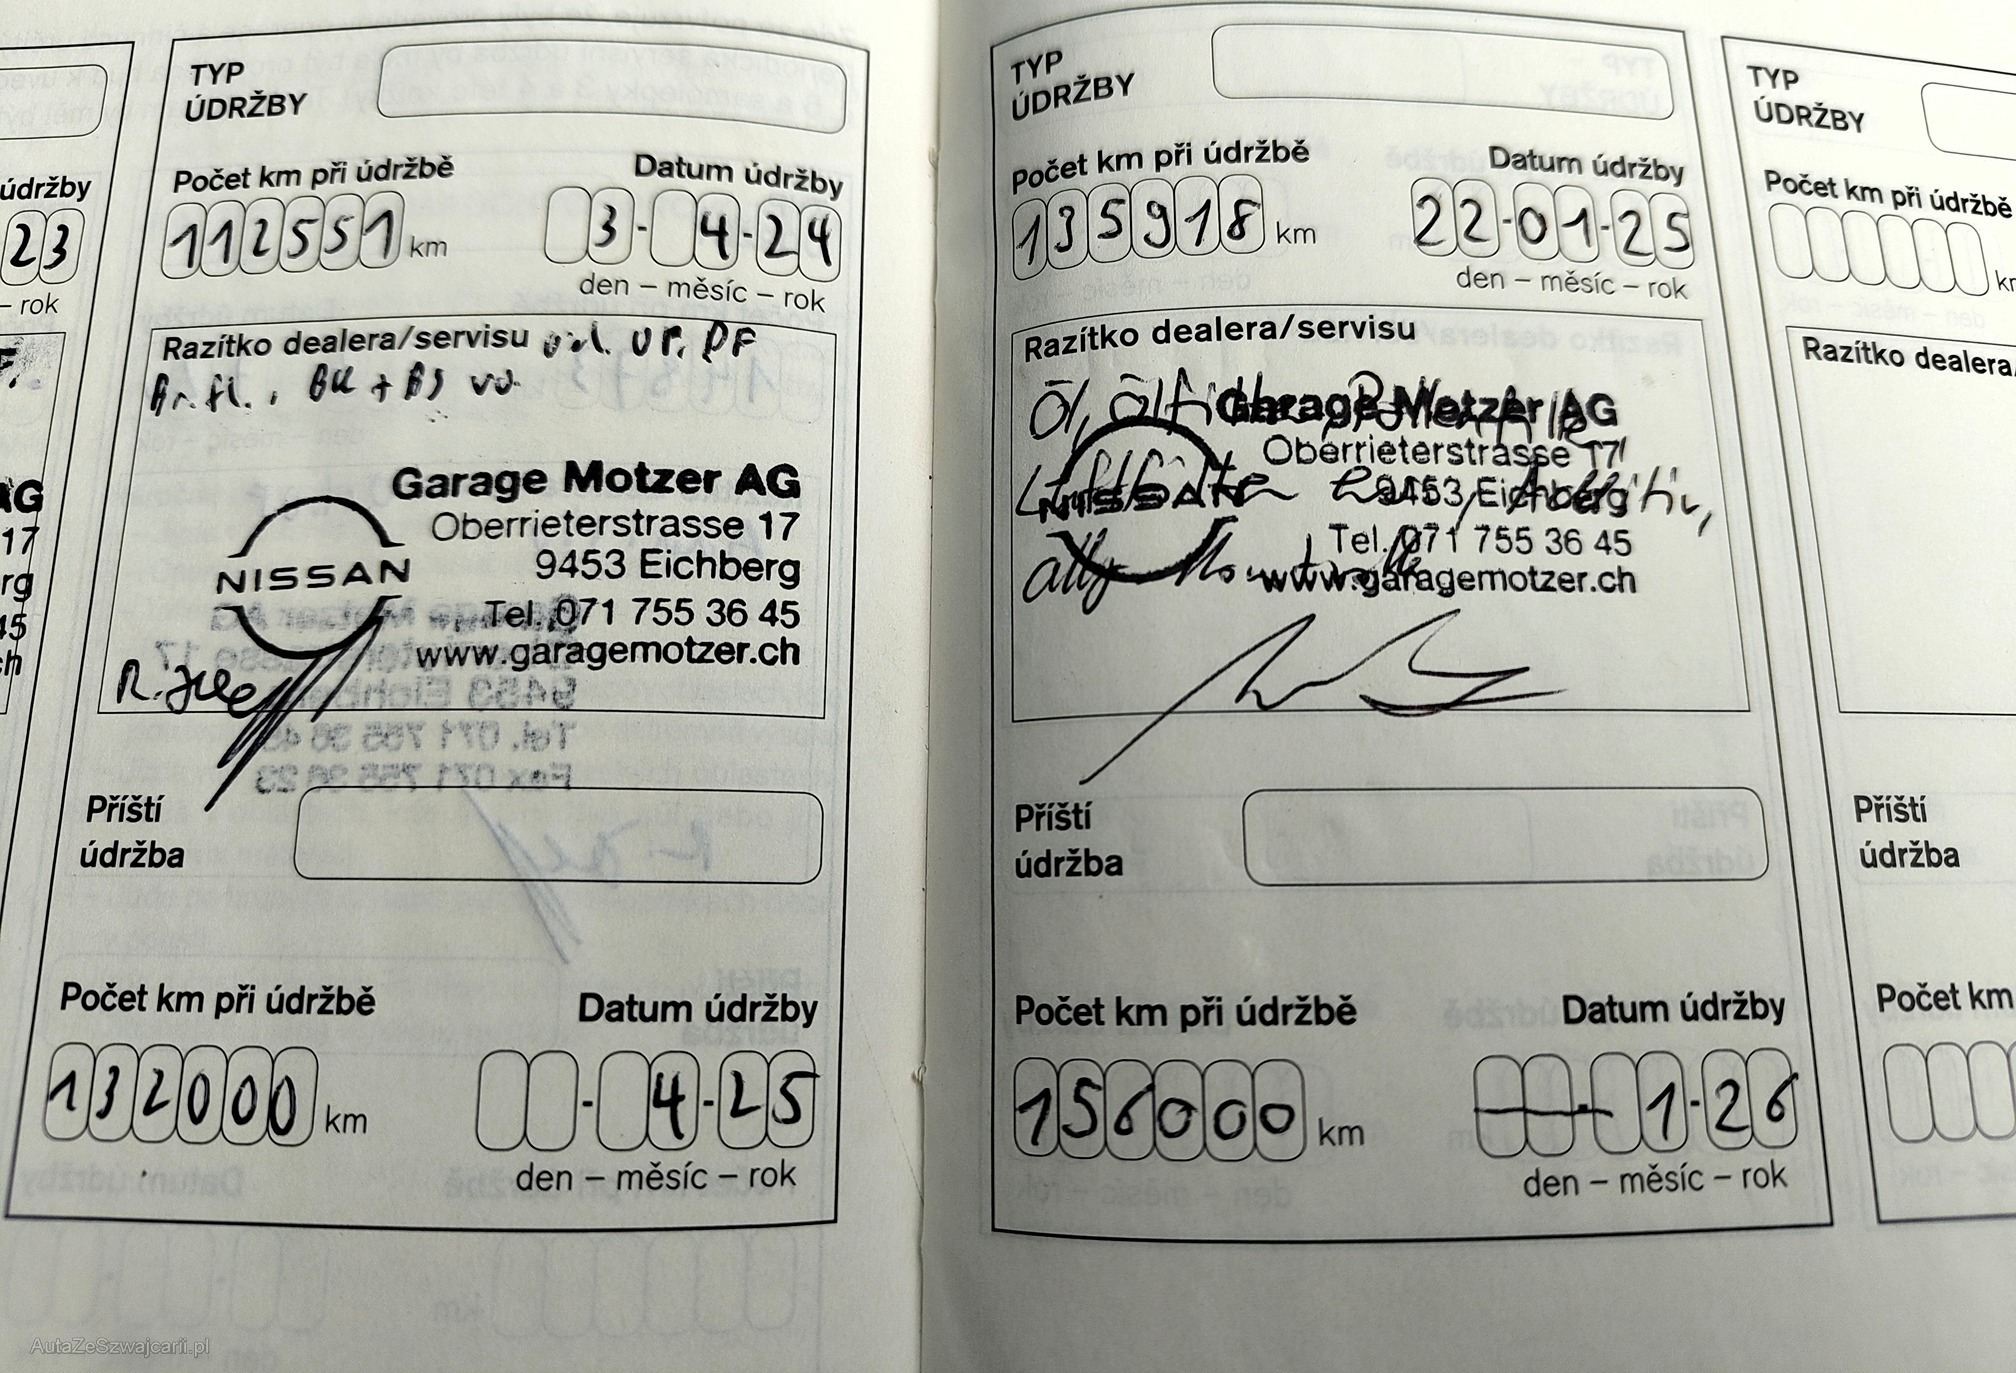 údržby
23
– rok
AG
17
rg
45
ch
TYP
ÚDRŽBY
Počet km při údržbě
Datum údržby
112551 km
3 - 4 - 24
den – měsíc – rok
Razítko dealera/servisu
Br.fl.
Garage Motzer AG
Oberrieterstrasse 17
9453 Eichberg
Tel. 071 755 36 45
www.garagemotzer.ch
NISSAN
Příští
údržba
Počet km při údržbě
Datum údržby
132000 km
4 - 25
den – měsíc – rok
TYP
ÚDRŽBY
Počet km při údržbě
Datum údržby
135918 km
22-01-25
den – měsíc – rok
Razítko dealera/servisu
Öl, Ölfilter
Garage Motzer AG
Oberrieterstrasse 17
9453 Eichberg
Tel. 071 755 36 45
www.garagemotzer.ch
NISSAN
Příští
údržba
Počet km při údržbě
Datum údržby
156000 km
1-26
den – měsíc – rok
TYP
ÚDRŽBY
Počet km při údržbě
Razítko dealera/
Příští
údržba
Počet km
AutaZeSzwajcarii.pl